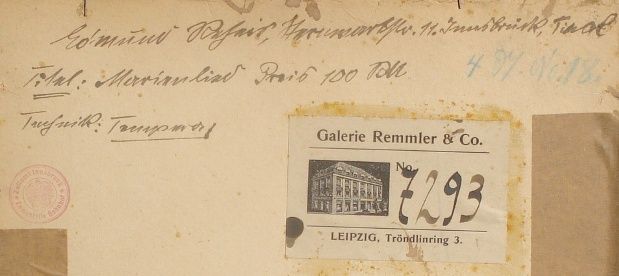 Edmund Scheis, Hermarkstr. 11. Innsbruck, Tirol
Titel: Marienlied Preis 100 RM
Technik: Tempera
Galerie Remmler & Co.
No. 7293
LEIPZIG, Tröndlinring 3.